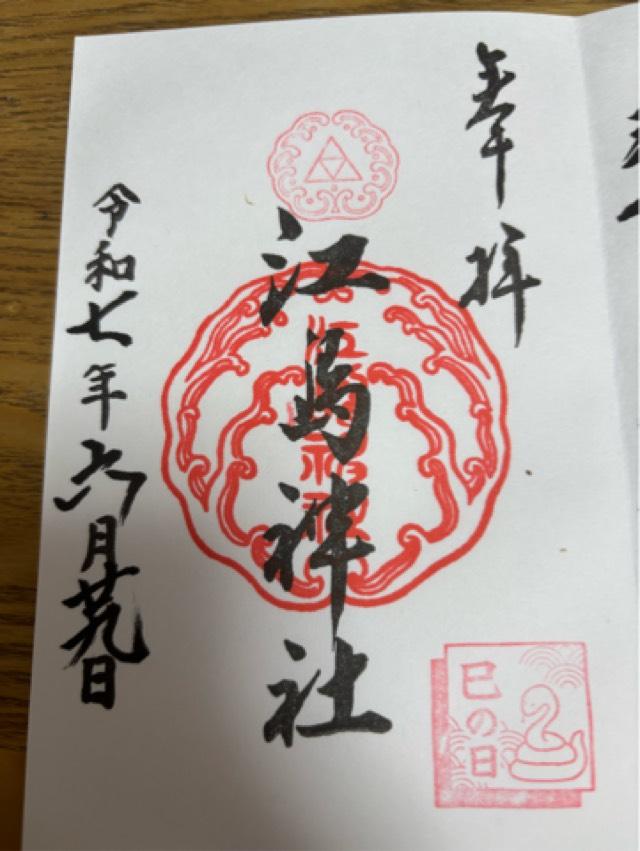 奉拝
江島神社
令和七年六月廿九日
巳の日